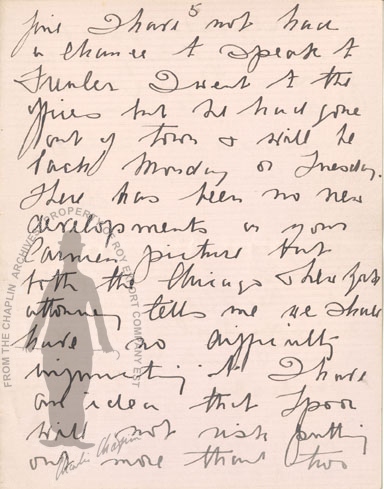 5
fine I have not had
a chance to speak to
Freuler I went to the
offices but he had gone
out of town & will be
back Monday or Tuesday.
There has been no new
developments in your
Carmen picture but
both the Chicago & New York
attorney tells me we shall
have no difficulty
injuncting it I have
an idea that Spoor
will not risk putting
out more than two
FROM THE CHAPLIN ARCHIVES PROPERTY OF ROY EXPORT COMPANY EST
Charlie Chaplin